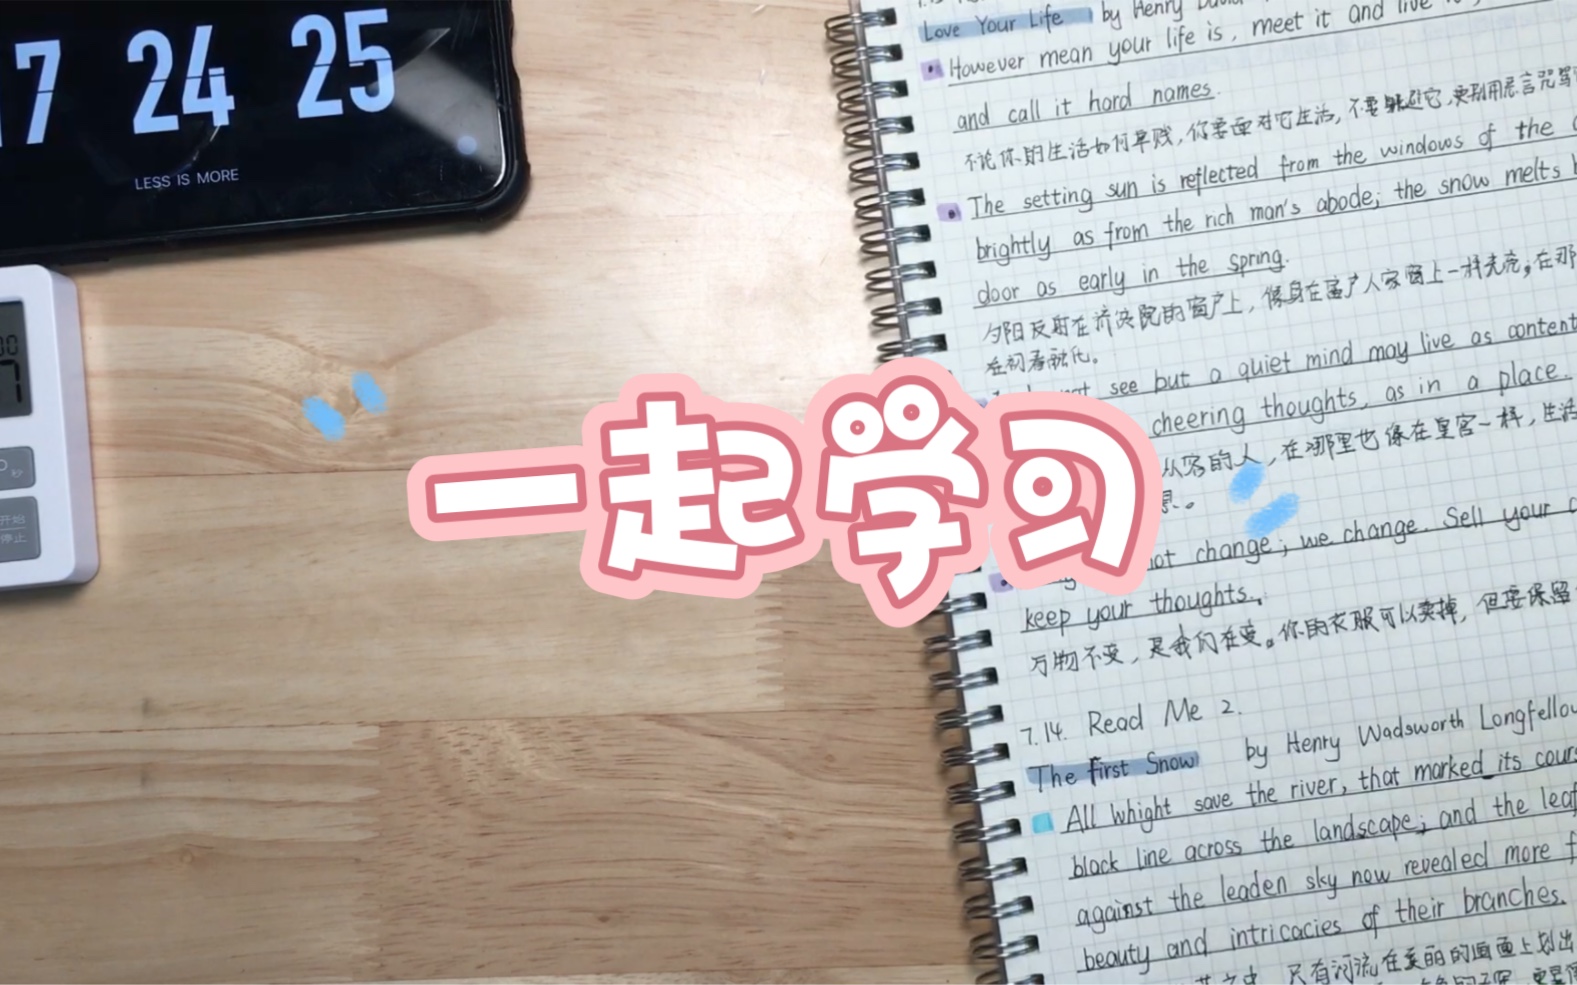 17 24 25
LESS IS MORE
开始
停止
秒
一起学习
Love Your Life by Henry
However mean your life is, meet it and live
and call it hard names.
不论你的生活如何卑贱,你要面对它生活,不要躲避它,更别用恶言咒骂
The setting sun is reflected from the windows of the
brightly as from the rich man's abode; the snow melts
door as early in the spring.
夕阳反射在济贫院的窗户上,像身在富户人家窗上一样光亮;在那
在初春融化。
see but a quiet mind may live as content
cheering thoughts, as in a place.
从容的人,在哪里也像在皇宫一样,生活
not change; we change. Sell your
keep your thoughts.
万物不变,是我们在变。你的衣服可以卖掉,但要保留
7.14. Read Me 2.
The first Snow by Henry Wadsworth Longfellow
All whight save the river, that marked its cours
black line across the landscape; and the leaf
against the leaden sky now revealed more
beauty and intricacies of their branches.
只有河流在美丽的画面上划出